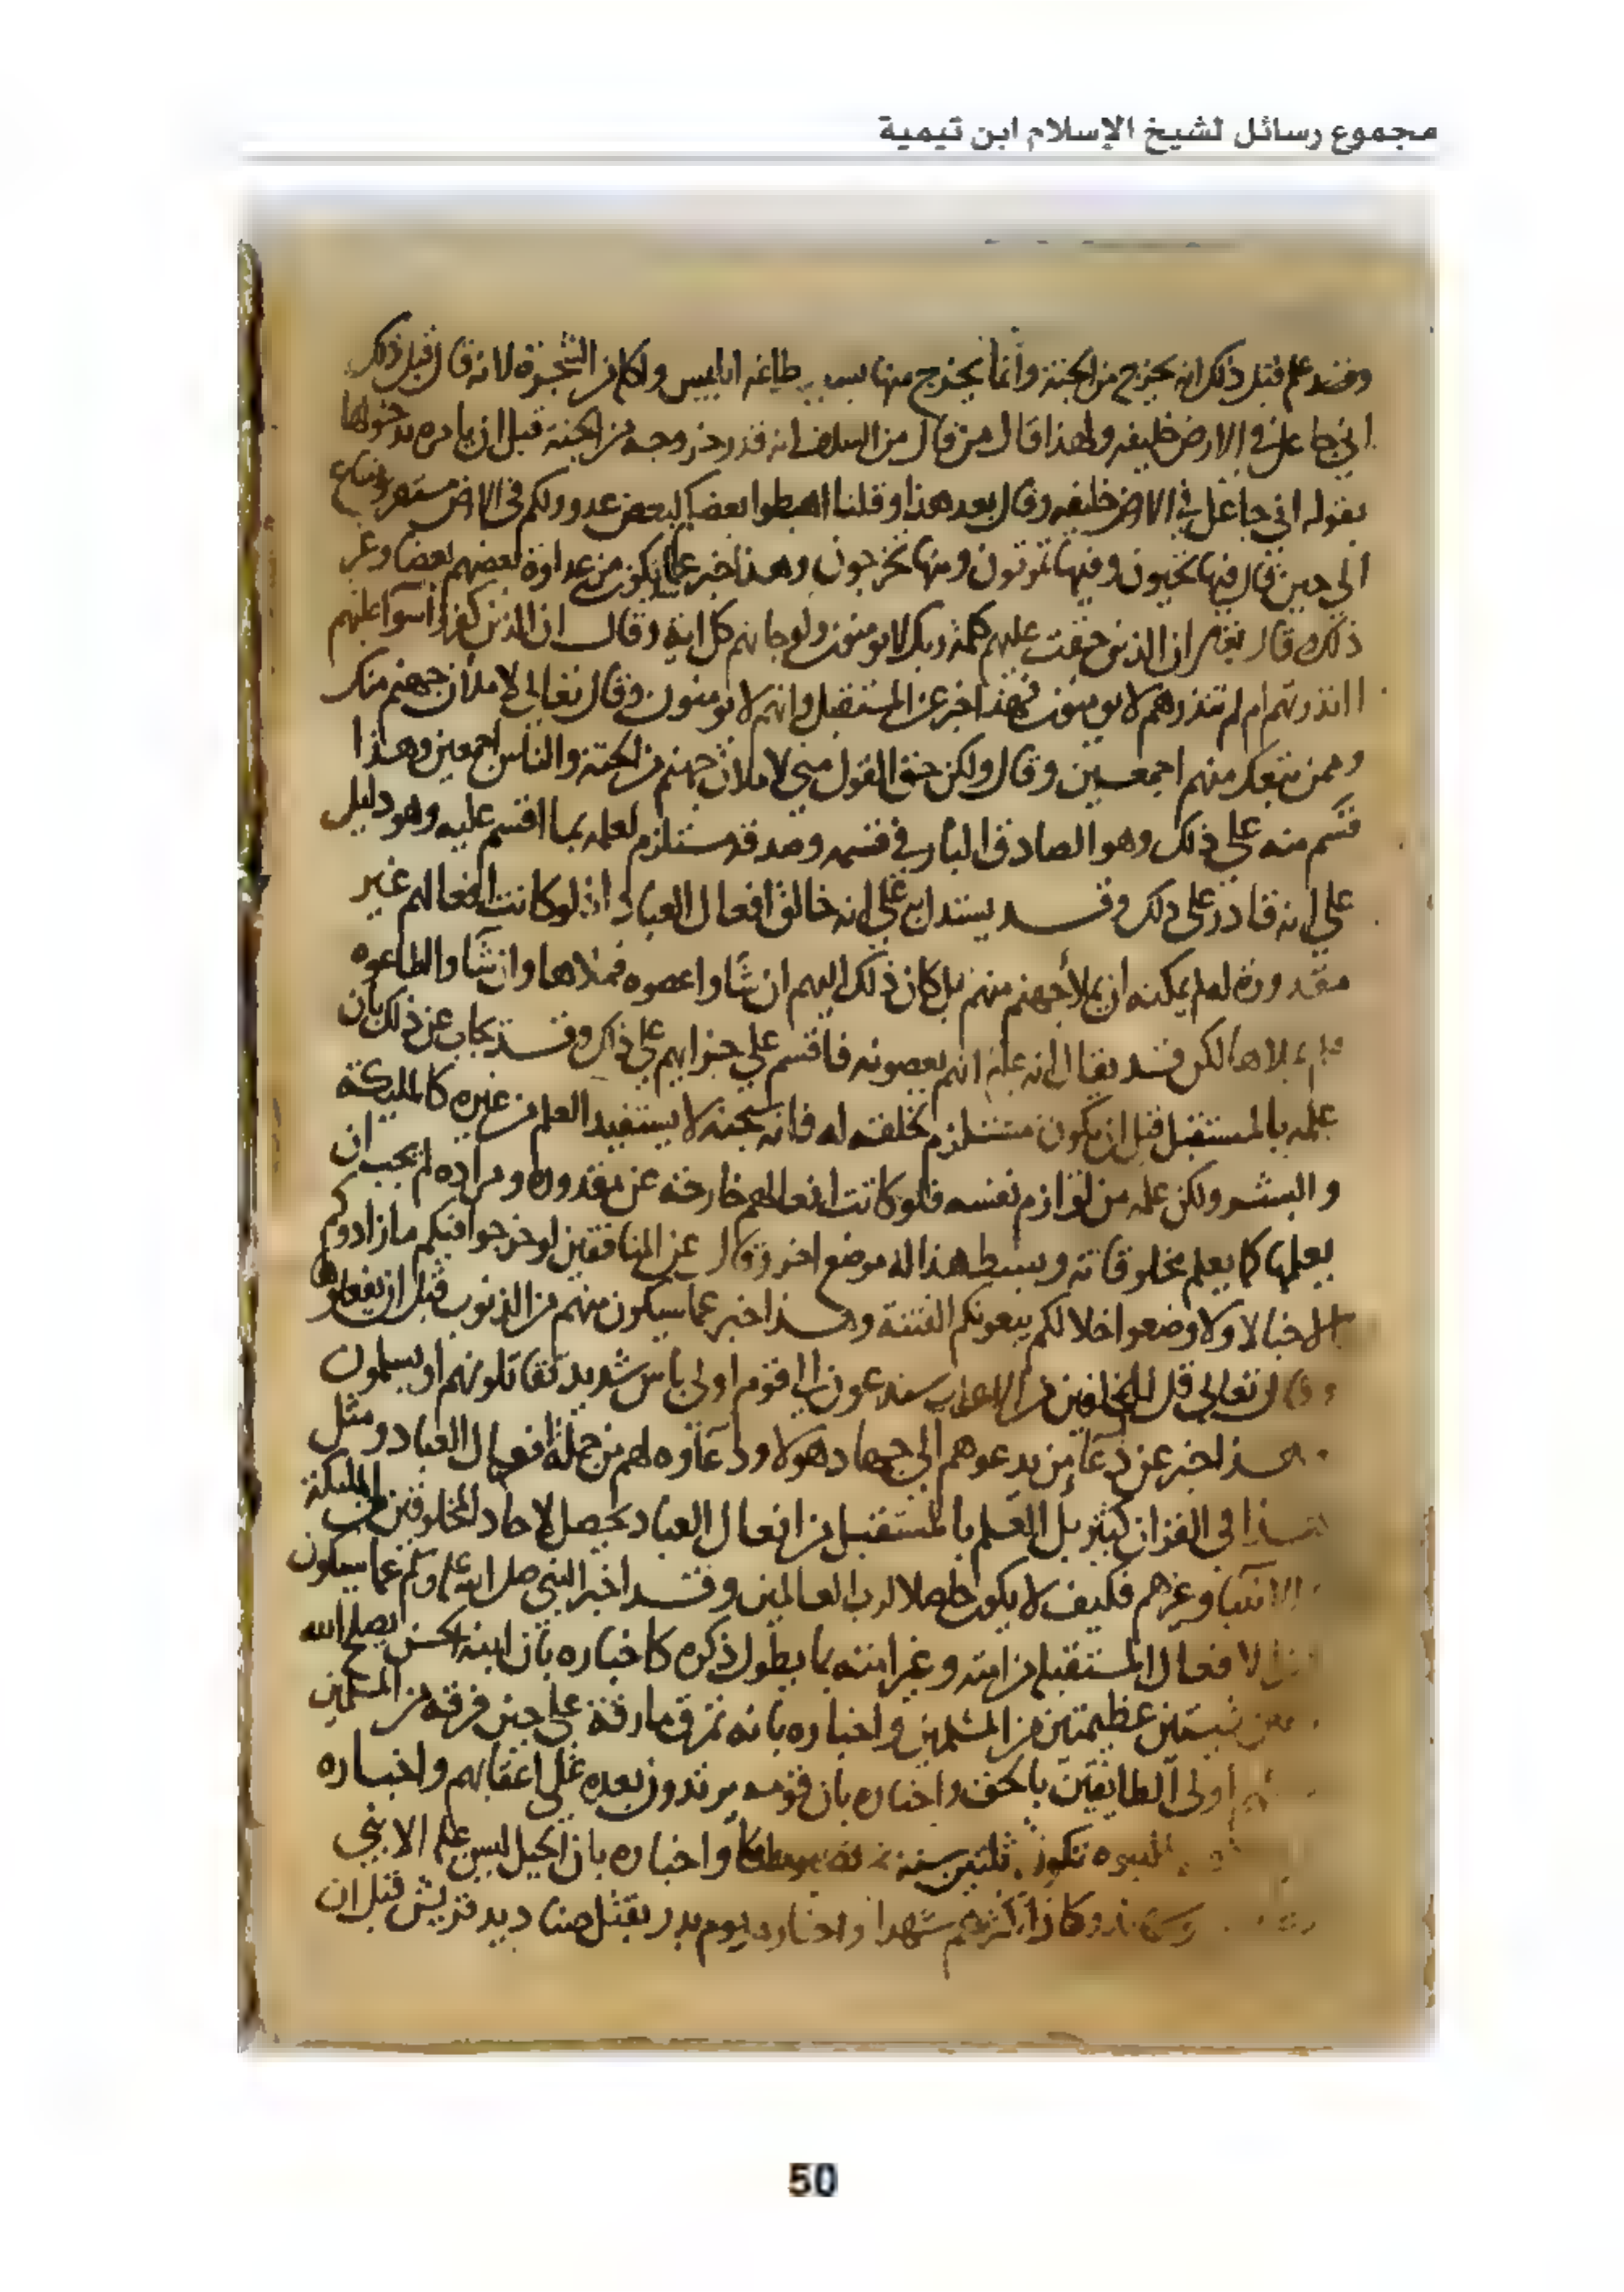 مجموع رسائل لشيخ الإسلام ابن تيمية
وقد علم قبل ذلك انه يخرج من الجنة وانما يخرج منها بسبب طاعته ابليس واكله من الشجرة لانه قال قبل ذلك
اني جاعل في الارض خليفه ولهذا قال من قال من السلف انه قدر خروجه من الجنة قبل ان يامره بدخولها
بقوله اني جاعل في الارض خليفه وقال بعد هذا وقلنا اهبطوا بعضكم لبعض عدو ولكم في الارض مستقر ومتاع
الى حين قال فيها تحيون وفيها تموتون ومنها تخرجون وهذا خبر عما يكون من عداوة بعضهم بعضا وغير
ذلك وقال تعالى ان الذين حقت عليهم كلمة ربك لا يومنون ولو جاتهم كل اية وقال ان الذين كفروا سوآ عليهم
اانذرتهم ام لم تنذرهم لا يومنون فهذا خبر عن المستقبل وانهم لا يومنون وقال تعالى لاملأن جهنم منك
وممن تبعك منهم اجمعين وقال ولكن حق القول مني لاملان جهنم من الجنة والناس اجمعين وهذا
قسم منه على ذلك وهو الصادق البار في قسمه وصدقه مستلزم لعلمه بما اقسم عليه وهو دليل
على انه قادر على ذلك وقد يستدل به على انه خالق افعال العباد اذ لو كانت افعالهم غير
مقدورة له لم يمكنه ان يملأ جهنم منهم بل كان ذلك اليهم ان شاوا عصوه فملاها وان شاوا اطاعوه
فلم يملاها لكن قد يقال انه علم انهم يعصونه فاقسم على جزايهم على ذلك وقد يجاب عن ذلك بان
علمه بالمستقبل قبل ان يكون مستلزم لخلقه له فانه سبحنه لا يستفيد العلم من غيره كالمليكة
والبشر ولكن علمه من لوازم نفسه فلو كانت افعالهم خارجة عن مقدوره ومراده لم يجب ان
يعلمها كما يعلم مخلوقاته وبسط هذا له موضع اخر وقال عن المنافقين لو خرجوا فيكم ما زادوكم
الا خبالا ولاوضعوا خلالكم يبغونكم الفتنة وهذا خبر عما سيكون منهم من الذنوب قبل ان يفعلوها
وقال تعالى قل للمخلفين من الاعراب ستدعون الى قوم اولى باس شديد تقاتلونهم او يسلمون
وهذا خبر عن دعآ من يدعوهم الى جهاد هولا ودعآوه لهم من جملة افعال العباد ومثل
هذا في القران كثير بل العلم بالمستقبل من افعال العباد يحصل لاحاد المخلوقين من المليكة
والانبيا وغيرهم فكيف لا يكون حاصلا لرب العالمين وقد اخبر النبي صلى الله عليه وسلم عما سيكون
من الافعال المستقبلة من امته وغير امته بما يطول ذكره كاخباره بان ابنه الحسن يصلح الله
به بين فيتين عظيمتين من المسلمين واخباره بانه تمرق مارقة على حين فرقة من المسلمين
اولى الطايفتين بالحق واخباره بان قوما يرتدون بعده على اعقابهم واخباره
النبوه تكون ثلثين سنة ثم تصير ملكا واخباره بان الجبل ليس عليه الا نبي
وشهيد وكان اكثرهم شهدا واخباره يوم بدر بقتل صناديد قريش قبل ان
50